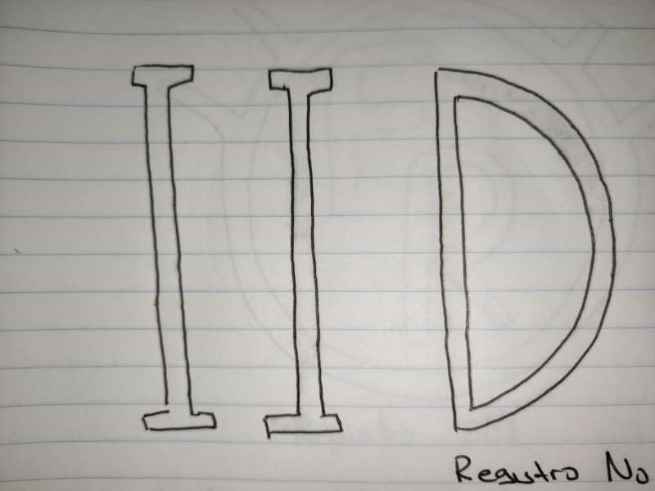 IID
Registro No